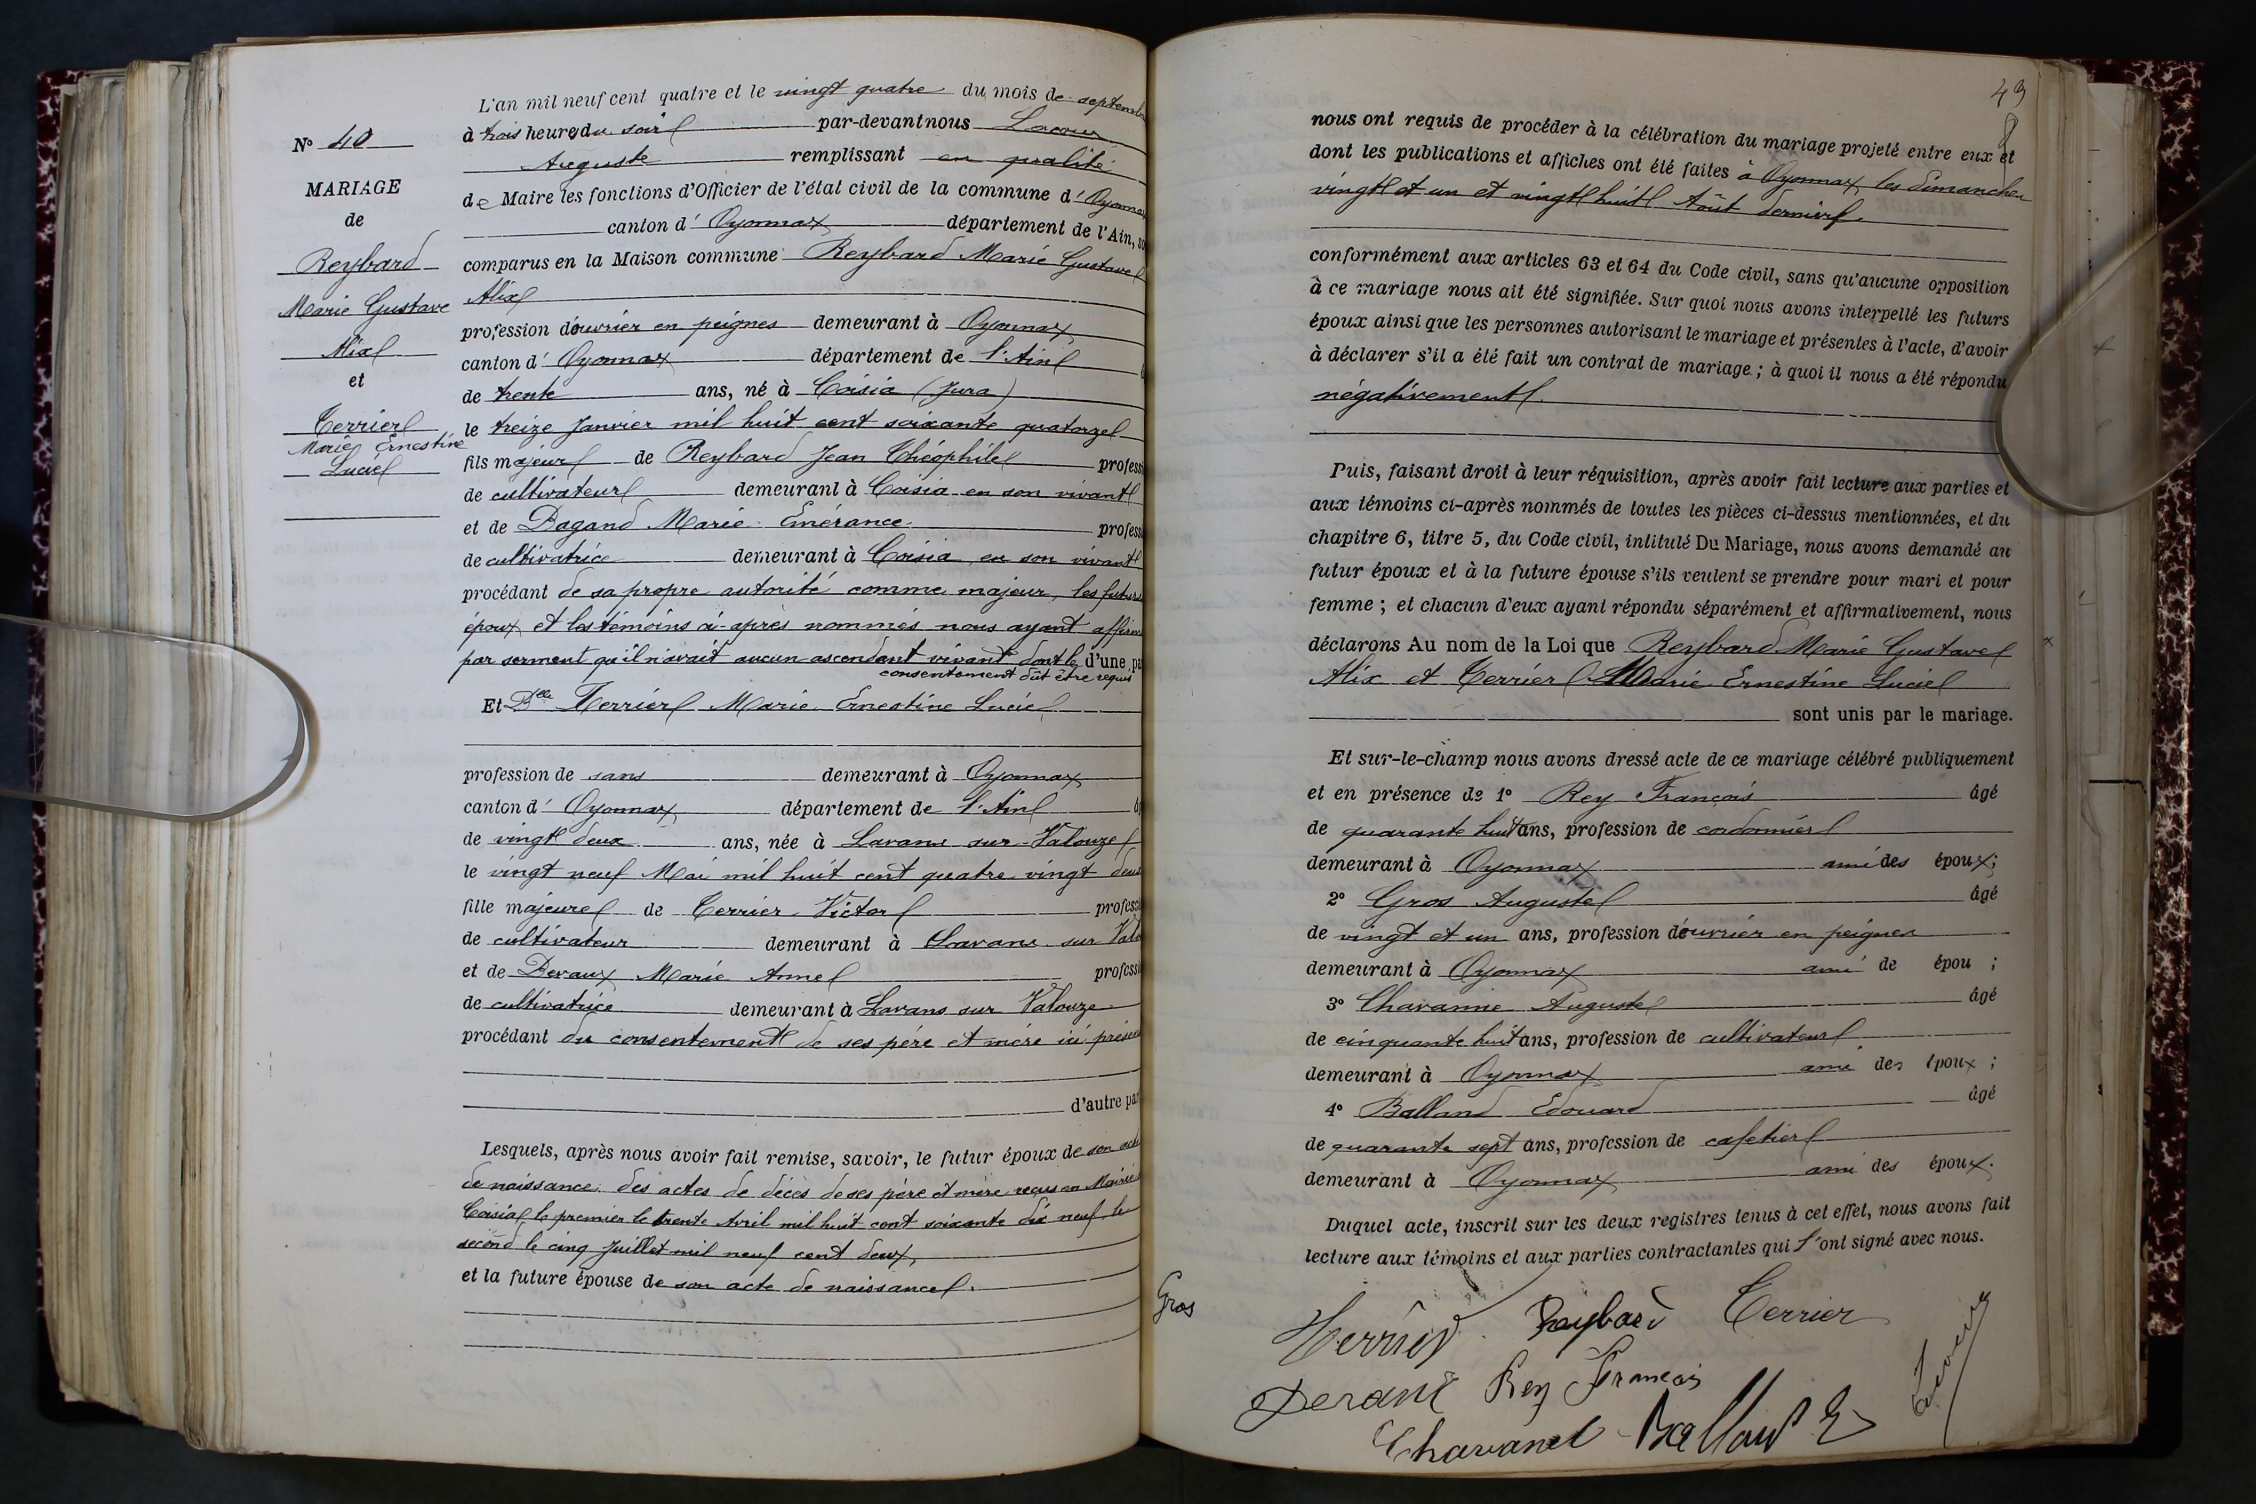 N° 40
MARIAGE
de
Reybard
Marie Gustave
Alix
et
Terrier
Marie Ernestine
Lucie
L'an mil neuf cent quatre et le vingt quatre du mois de septembre
à trois heures du soir par-devant nous Lacour
Auguste remplissant en qualité
de Maire les fonctions d'Officier de l'état civil de la commune d'Oyonnax
canton d'Oyonnax département de l'Ain,
comparus en la Maison commune Reybard Marie Gustave
Alix
profession d'ouvrier en peignes demeurant à Oyonnax
canton d'Oyonnax département de l'Ain
de trente ans, né à Coisia (Jura)
le treize Janvier mil huit cent soixante quatorze
fils majeur de Reybard Jean Théophile professi
de cultivateur demeurant à Coisia en son vivant
et de Dagand Marie Emérance professi
de cultivatrice demeurant à Coisia en son vivant
procédant de sa propre autorité comme majeur, les futurs
époux et les témoins ci-après nommés nous ayant affirmé
par serment qu'il n'avait aucun ascendant vivant dont le d'une pa
consentement dût être requis
Et Dlle Terrier Marie Ernestine Lucie
profession de sans demeurant à Oyonnax
canton d'Oyonnax département de l'Ain
de vingt deux ans, née à Lavans sur Valouze
le vingt neuf Mai mil huit cent quatre vingt deux
fille majeure de Terrier Victor professi
de cultivateur demeurant à Lavans sur Valo
et de Devaux Marie Anne professi
de cultivatrice demeurant à Lavans sur Valouze
procédant du consentement de ses père et mère ici présen
d'autre par
Lesquels, après nous avoir fait remise, savoir, le futur époux de son acte
de naissance, des actes de décès de ses père et mère reçus en Mairie
Coisia, le premier le trente Avril mil huit cent soixante dix neuf, le
second le cinq Juillet mil neuf cent deux,
et la future épouse de son acte de naissance.
43
nous ont requis de procéder à la célébration du mariage projeté entre eux et
dont les publications et affiches ont été faites à Oyonnax les dimanches
vingt et un et vingt huit Août dernier.
conformément aux articles 63 et 64 du Code civil, sans qu'aucune opposition
à ce mariage nous ait été signifiée. Sur quoi nous avons interpellé les futurs
époux ainsi que les personnes autorisant le mariage et présentes à l'acte, d'avoir
à déclarer s'il a été fait un contrat de mariage ; à quoi il nous a été répondu
négativement.
Puis, faisant droit à leur réquisition, après avoir fait lecture aux parties et
aux témoins ci-après nommés de toutes les pièces ci-dessus mentionnées, et du
chapitre 6, titre 5, du Code civil, intitulé Du Mariage, nous avons demandé au
futur époux et à la future épouse s'ils veulent se prendre pour mari et pour
femme ; et chacun d'eux ayant répondu séparément et affirmativement, nous
déclarons Au nom de la Loi que Reybard Marie Gustave
Alix et Terrier Marie Ernestine Lucie
sont unis par le mariage.
Et sur-le-champ nous avons dressé acte de ce mariage célébré publiquement
et en présence de 1° Rey François âgé
de quarante huit ans, profession de cordonnier
demeurant à Oyonnax ami des époux;
2° Gros Auguste âgé
de vingt et un ans, profession d'ouvrier en peignes
demeurant à Oyonnax ami de épou ;
3° Chavanne Auguste âgé
de cinquante huit ans, profession de cultivateur
demeurant à Oyonnax ami des époux ;
4° Balland Edouard âgé
de quarante sept ans, profession de cafetier
demeurant à Oyonnax ami des époux.
Duquel acte, inscrit sur les deux registres tenus à cet effet, nous avons fait
lecture aux témoins et aux parties contractantes qui l'ont signé avec nous.
Gros
Terrier Reybard Terrier
Rey François
Chavanne Balland E